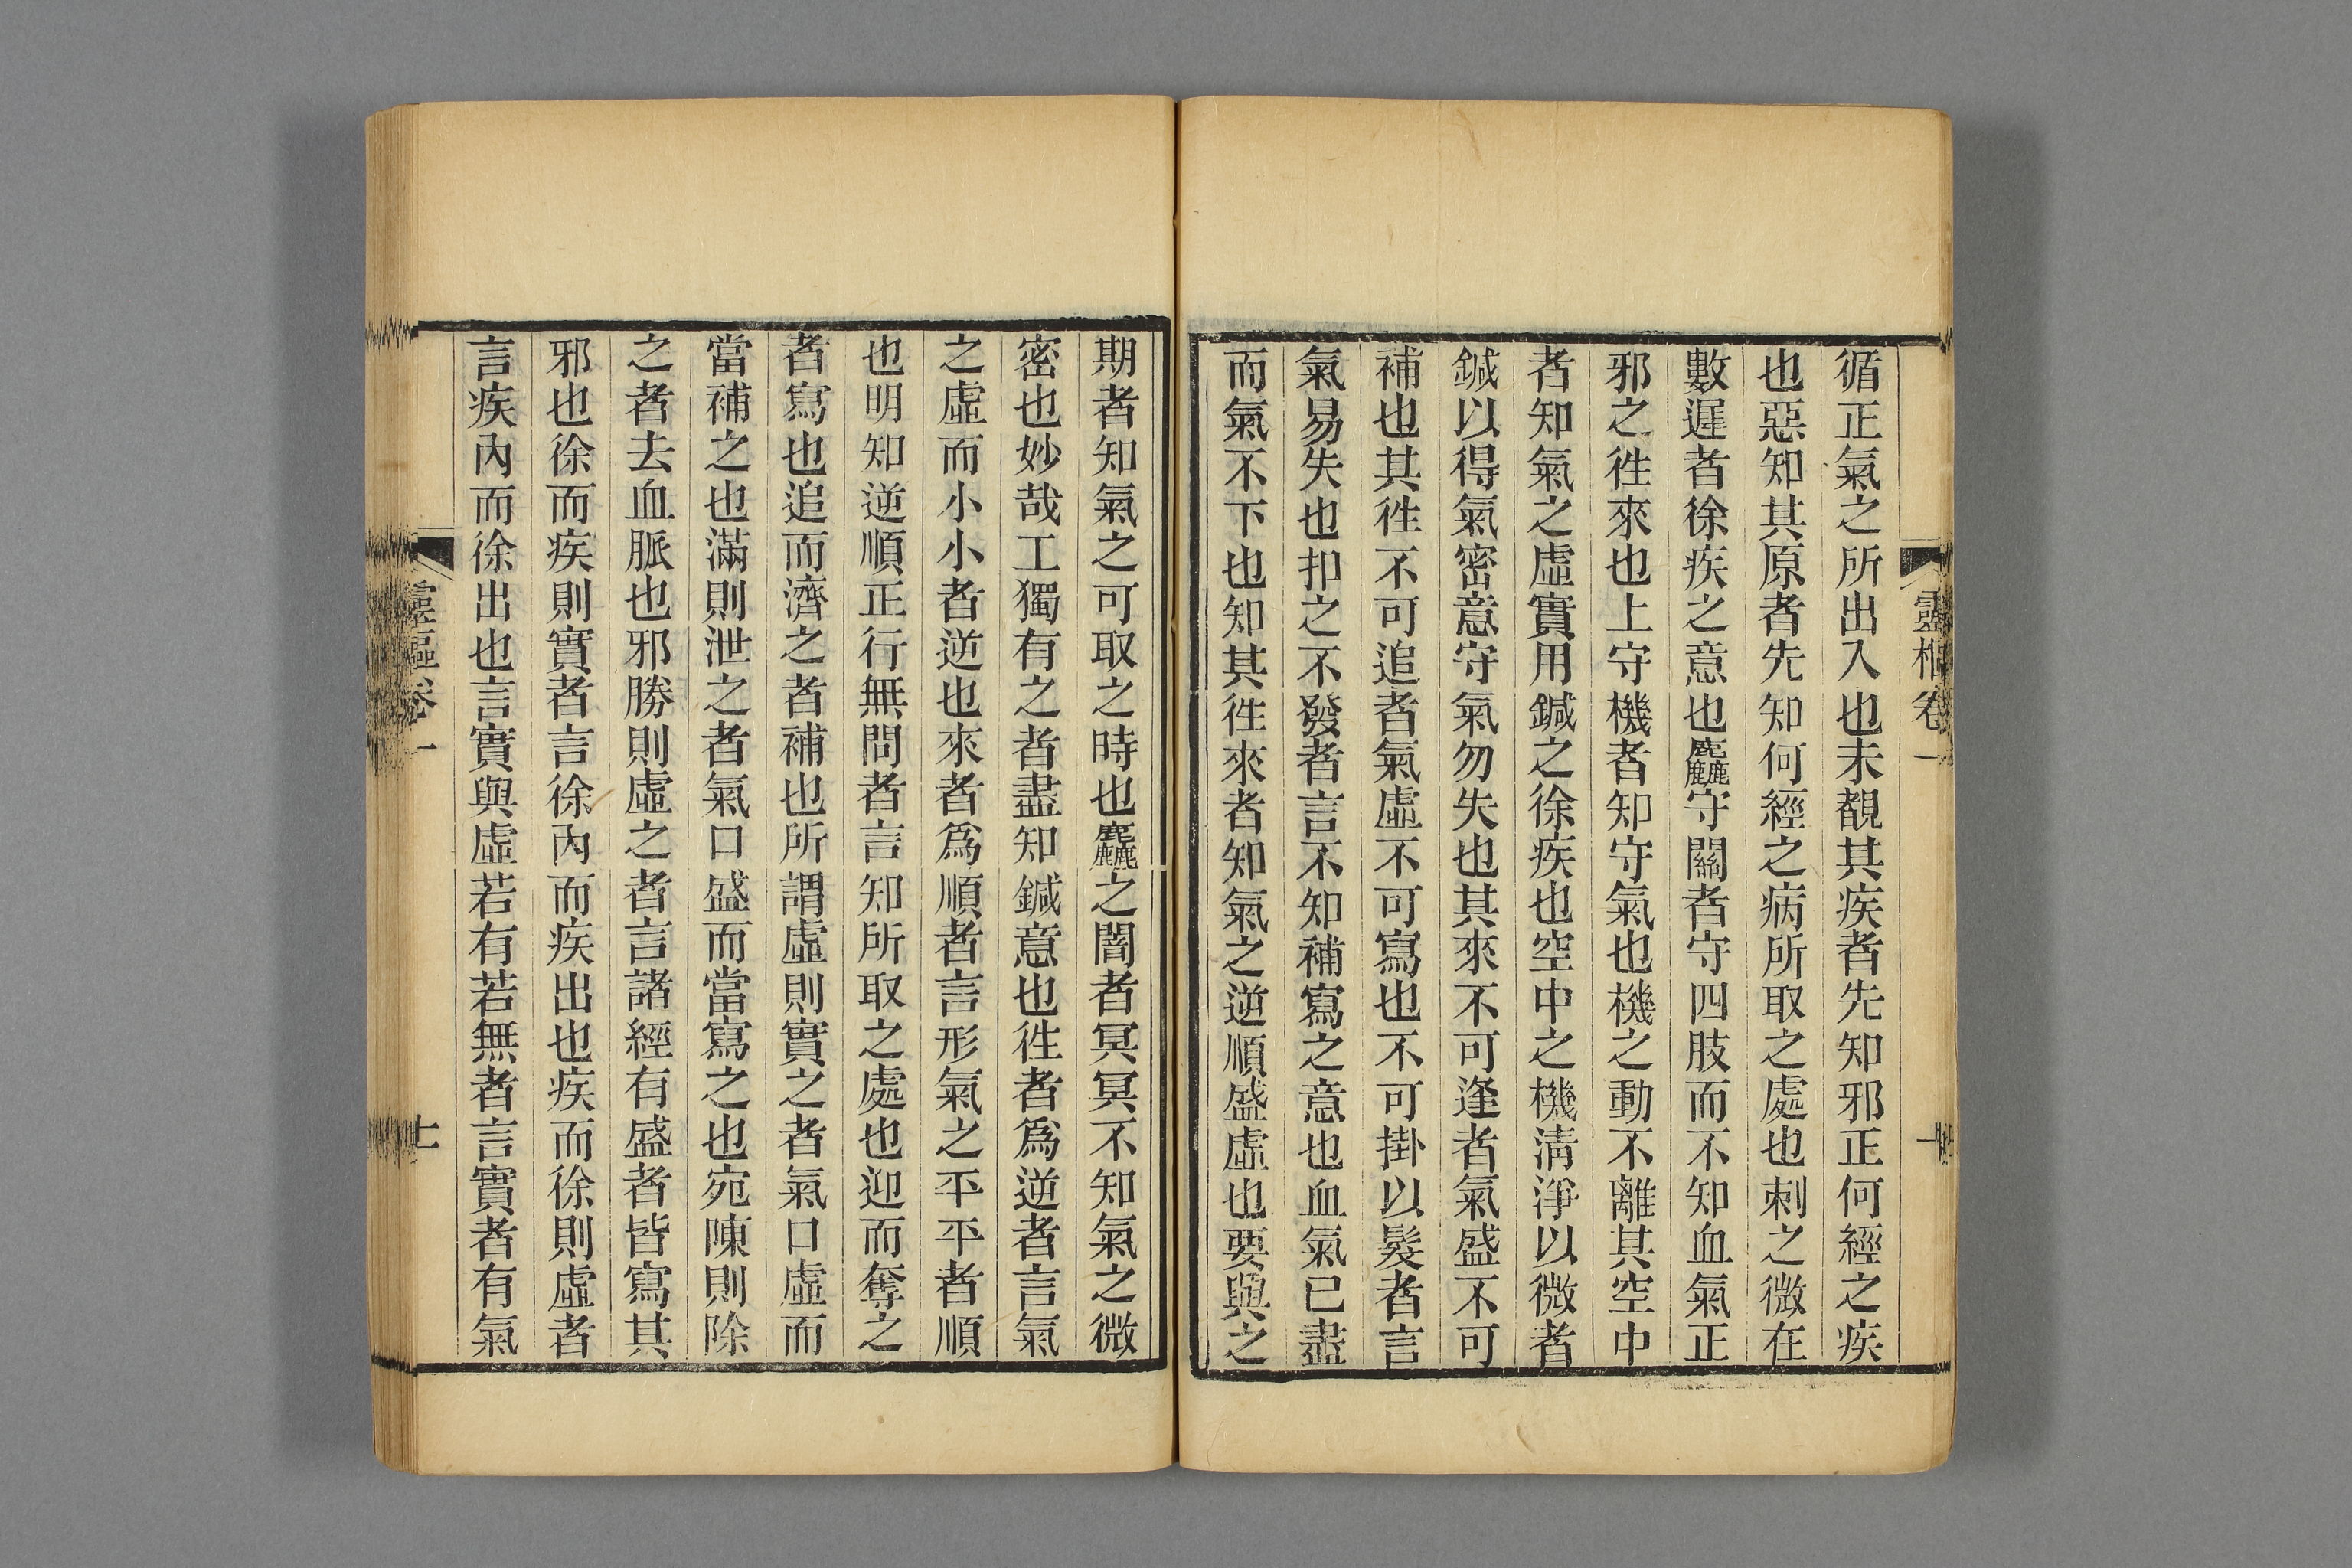 靈樞卷一
循正氣之所出入也未覩其疾者先知邪正何經之疾
也惡知其原者先知何經之病所取之處也刺之微在
數遲者徐疾之意也麤守關者守四肢而不知血氣正
邪之徃來也上守機者知守氣也機之動不離其空中
者知氣之虛實用鍼之徐疾也空中之機淸淨以微者
鍼以得氣密意守氣勿失也其來不可逢者氣盛不可
補也其徃不可追者氣虛不可寫也不可掛以髮者言
氣易失也扣之不發者言不知補寫之意也血氣已盡
而氣不下也知其徃來者知氣之逆順盛虛也要與之
期者知氣之可取之時也麤之闇者冥冥不知氣之微
密也妙哉工獨有之者盡知鍼意也徃者爲逆者言氣
之虛而小小者逆也來者爲順者言形氣之平平者順
也明知逆順正行無問者言知所取之處也迎而奪之
者寫也追而濟之者補也所謂虛則實之者氣口虛而
當補之也滿則泄之者氣口盛而當寫之也宛陳則除
之者去血脈也邪勝則虛之者言諸經有盛者皆寫其
邪也徐而疾則實者言徐內而疾出也疾而徐則虛者
言疾內而徐出也言實與虛若有若無者言實者有氣
靈樞卷一